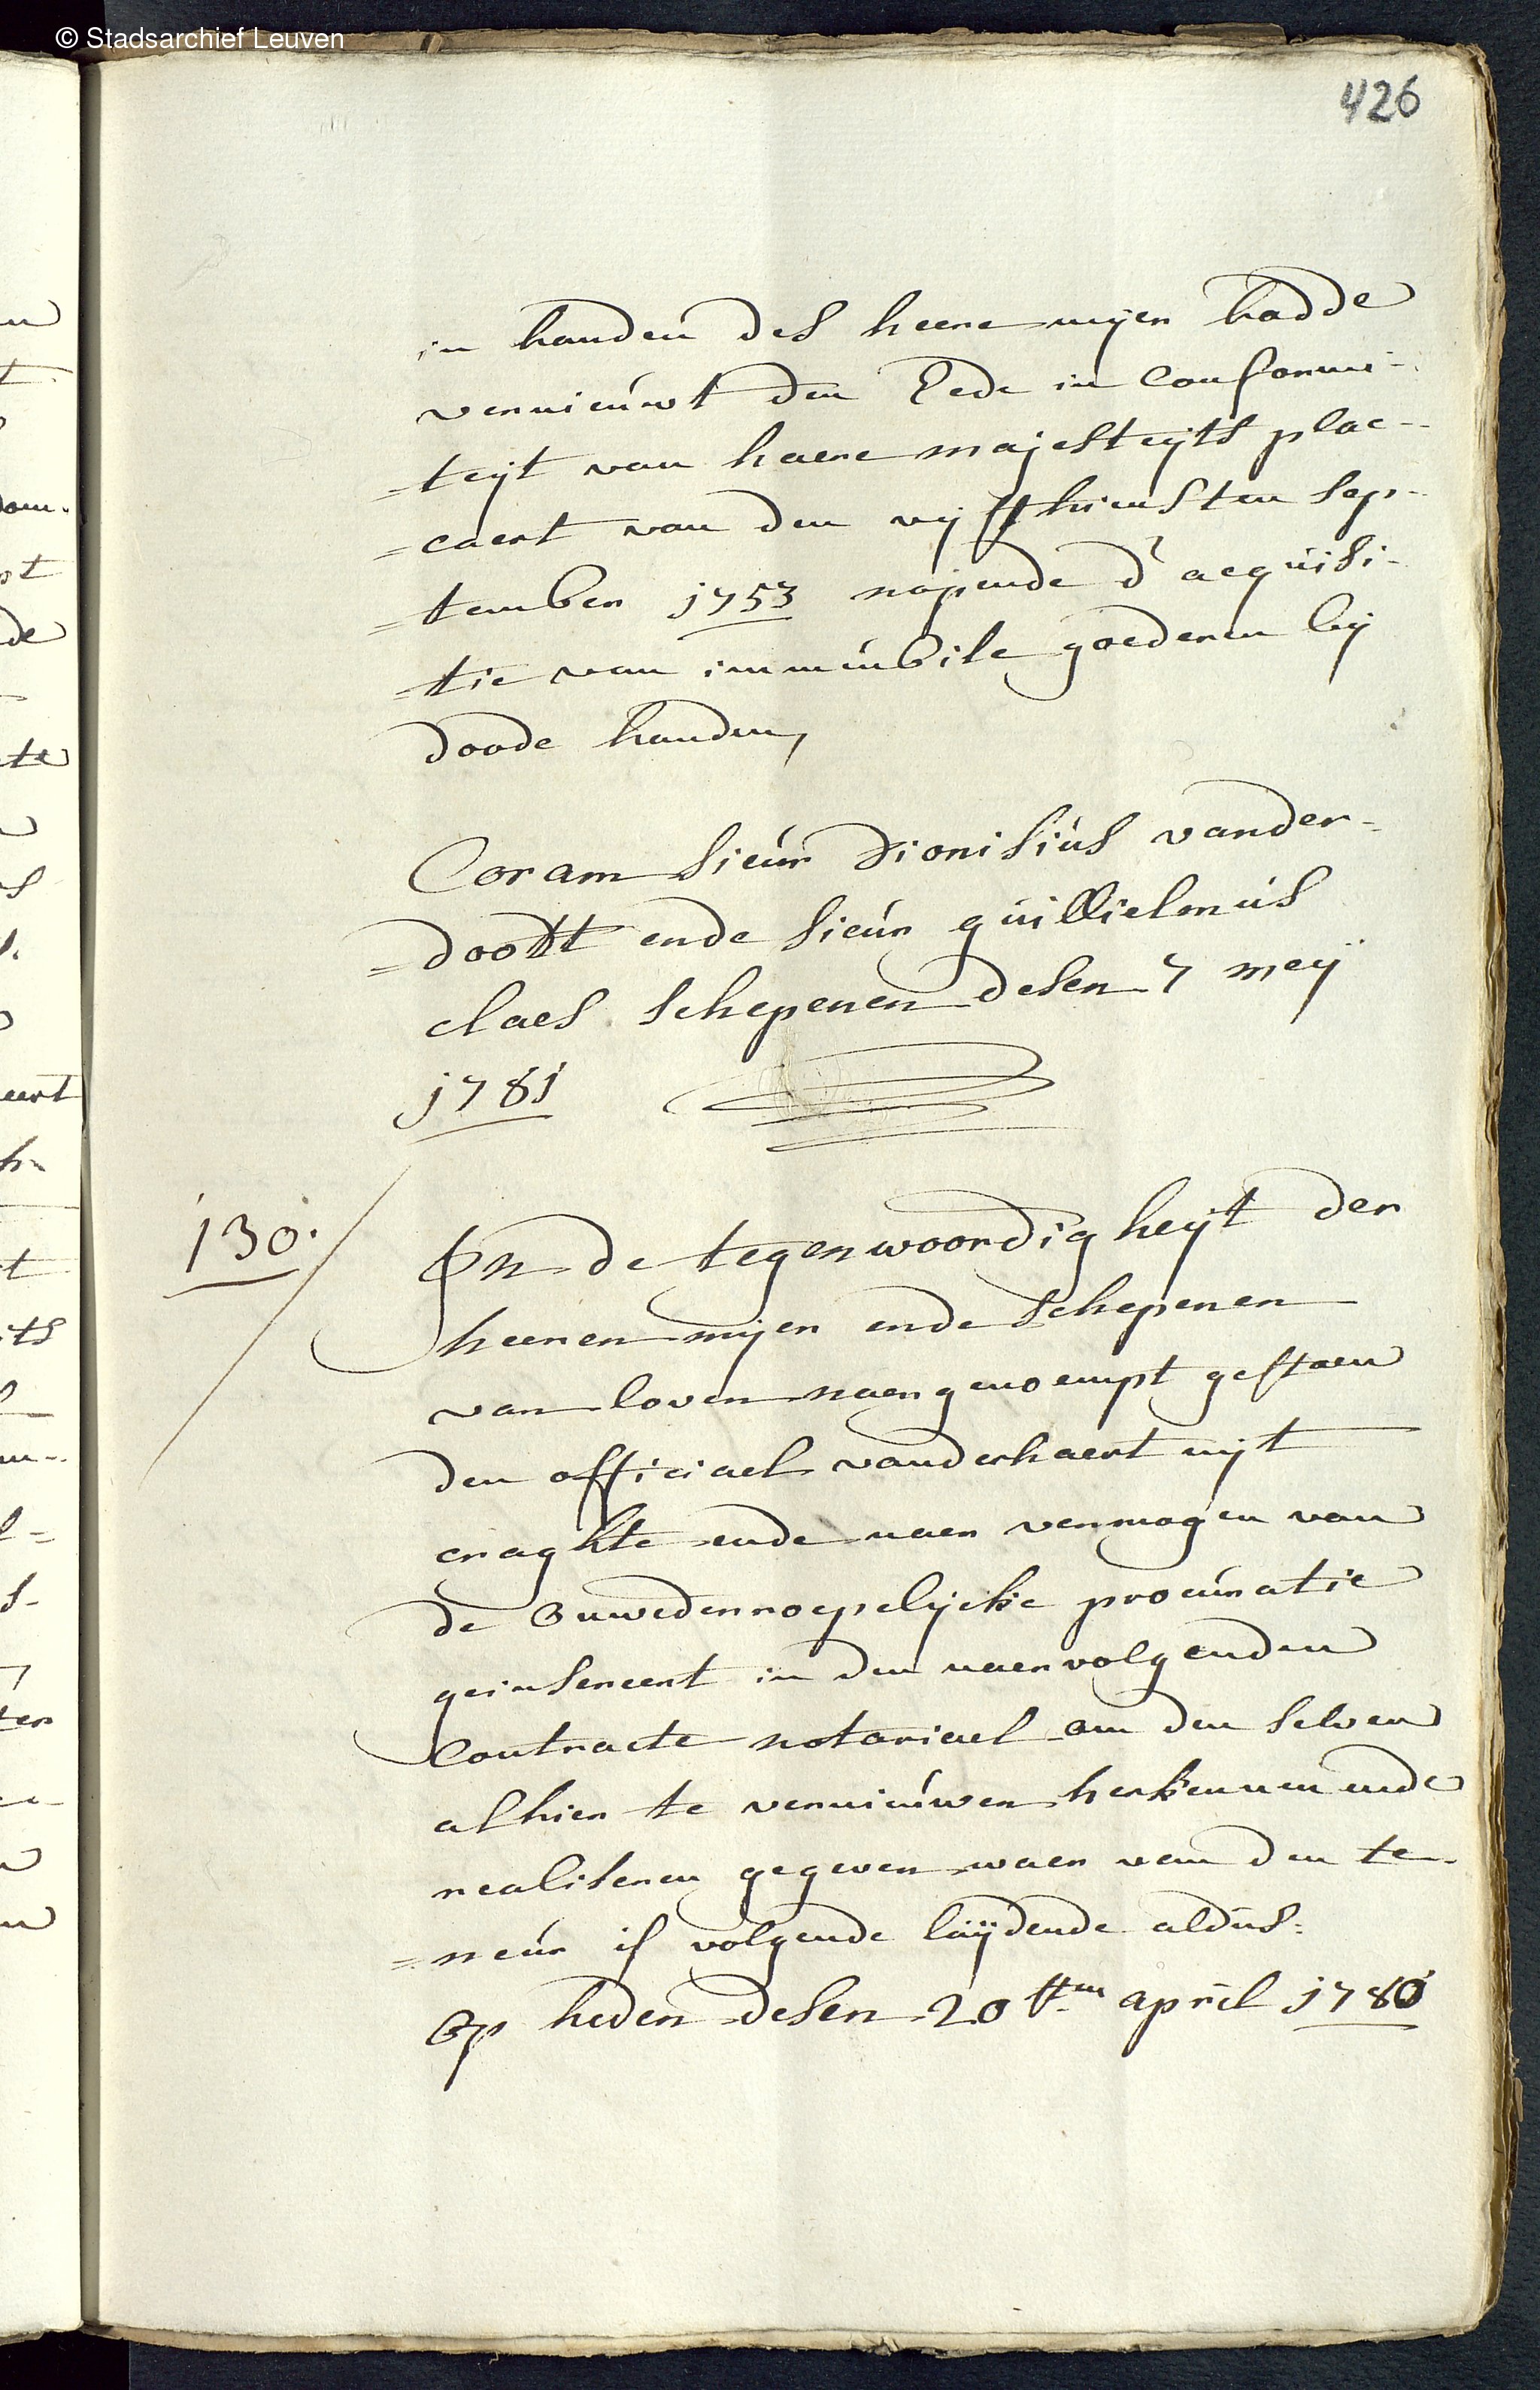 © Stadsarchief Leuven
426
in handen des heere meijer hadde
vernieuwt den Eede in Conformi-
=teijt van haere majesteijts plac-
=caert van den vijfthiensten sep-
=tember 1753 nopende d'acquisi-
=tie van immeubile goederen bij
doode handen,
Coram sieur Dionisius vander-
=doodt ende sieur guillielmus
claes schepenen desen 7 meij
1781
130.
In de tegenwoordigheijt der
heeren meijer ende schepenen
van loven naergenoempt gestaen
den officiael vanderhaert uijt
craghte ende naer vermogen van
de onwederroepelijcke procuratie
geinsereert in den naervolgenden
Contracte notariael om den selven
alhier te vernieuwen herkennen ende
realiseren gegeven waer van den te-
=neur is volgende luijdende aldus:
Op heden desen 20sten april 1780